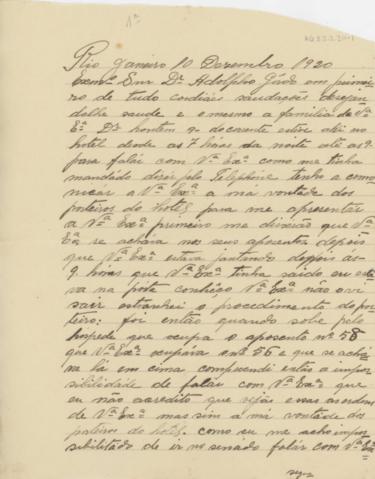 1ª
Rio Janeiro 10 Dezembro 1920
Exmº Snr Dr Adolpho Gôrdo em primei
ro de tudo cordiais saudações desejan
delhe saude e o mesmo a familia de Vª
Eª Dr hontem 9 do corrente estive ahi no
hotel desde as 7 horas da noite até as 9
para falar com Vª Exª como me tinha
mandado dizer pelo Telephone tenho a comu
nicar a Vª Exª a má vontade dos
porteiros do hotel para me apresentar
a Vª Exª primeiro me diserão que Vª
Eª se achava nos seus aposentos depois
que Vª Exª estava jantando depois ás
9 horas que Vª Exª tinha saido eu esta
va na porta Vª Exª não o vi
sair extranhei o procedimento do por
teiro: foi então quando sube pelo
hospede que ocupa o aposento nº 58
que Vª Exª ocupava o nº 56 e que se acha
va lá em cima compreendi então a impos
sibilidade de falar com Vª Exª que
eu não acredito que sejão essas as ordens
de Vª Exª mas sim a má vontade dos
porteiros do hotel. como eu me acho impos
sibilitado de ir no senado falar com Vª Exª